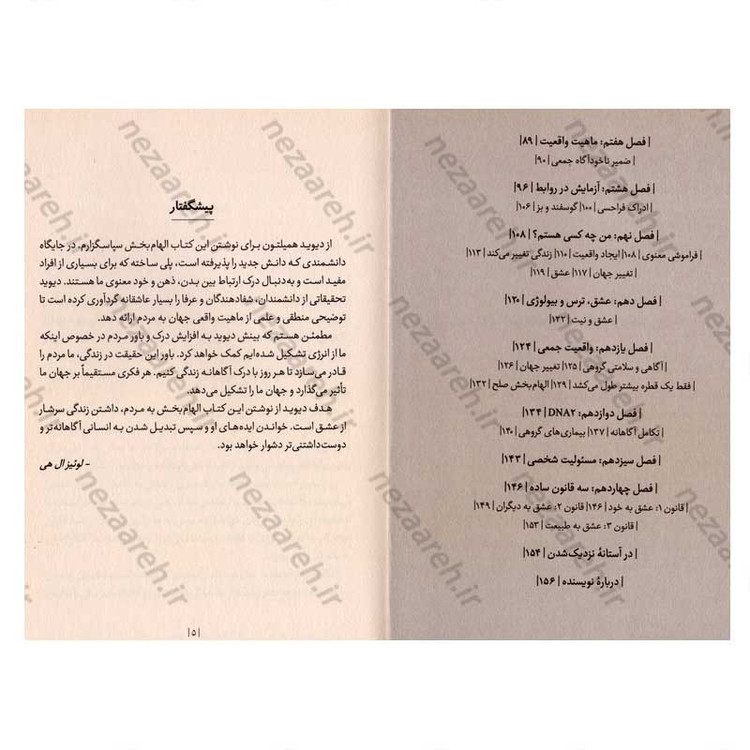 | فصل هفتم: ماهیت واقعیت | ۸۹|
| ضمیر ناخودآگاه جمعی | ۹۰|
| فصل هشتم: آزمایش در روابط | ۹۶|
| ادراک فراحسی | ۱۰۰| گوسفند و بز | ۱۰۶|
| فصل نهم: من چه کسی هستم؟ | ۱۰۸|
| فراموشی معنوی | ۱۰۸| ایجاد واقعیت | ۱۱۰| زندگی تغییر می‌کند | ۱۱۳|
| تغییر جهان | ۱۱۷| عشق | ۱۱۹|
| فصل دهم: عشق، ترس و بیولوژی | ۱۲۰|
| عشق و نیت | ۱۲۲|
| فصل یازدهم: واقعیت جمعی | ۱۲۴|
| آگاهی و سلامتی گروهی | ۱۲۵| تغییر جهان | ۱۲۶|
| فقط یک قطره بیشتر طول می‌کشد | ۱۲۹| الهام‌بخش صلح | ۱۳۲|
| فصل دوازدهم: DNA۲ | ۱۳۴|
| تکامل آگاهانه | ۱۳۷| بیماری‌های گروهی | ۱۴۰|
| فصل سیزدهم: مسئولیت شخصی | ۱۴۳|
| فصل چهاردهم: سه قانون ساده | ۱۴۶|
| قانون ۱: عشق به خود | ۱۴۶| قانون ۲: عشق به دیگران | ۱۴۹|
| قانون ۳: عشق به طبیعت | ۱۵۳|
| در آستانهٔ نزدیک‌شدن | ۱۵۴|
| دربارهٔ نویسنده | ۱۵۶|
پیشگفتار
از دیوید همیلتون برای نوشتن این کتاب الهام‌بخش سپاسگزارم. در جایگاه
دانشمندی که دانش جدید را پذیرفته است، پلی ساخته که برای بسیاری از افراد
مفید است و به‌دنبال درک ارتباط بین بدن، ذهن و خود معنوی ما هستند. دیوید
تحقیقاتی از دانشمندان، شفادهندگان و عرفا را بسیار عاشقانه گردآوری کرده است تا
توضیحی منطقی و علمی از ماهیت واقعی جهان به مردم ارائه دهد.
مطمئن هستم که بینش دیوید به افزایش درک و باور مردم در خصوص اینکه
ما از انرژی تشکیل شده‌ایم کمک خواهد کرد. باور این حقیقت در زندگی، ما مردم را
قادر می‌سازد تا هر روز با درک آگاهانه زندگی کنیم. هر فکری مستقیماً بر جهان ما
تأثیر می‌گذارد و جهان ما را تشکیل می‌دهد.
هدف دیوید از نوشتن این کتاب الهام‌بخش به مردم، داشتن زندگی سرشار
از عشق است. خواندن ایده‌های او و سپس تبدیل نشدن به انسانی آگاهانه‌تر و
دوست‌داشتنی‌تر دشوار خواهد بود.
- لوئیز ال هی
|۵|
nezaareh.ir
nezaareh.ir
nezaareh.ir
nezaareh.ir
nezaareh.ir
nezaareh.ir
nezaareh.ir
nezaareh.ir
nezaareh.ir